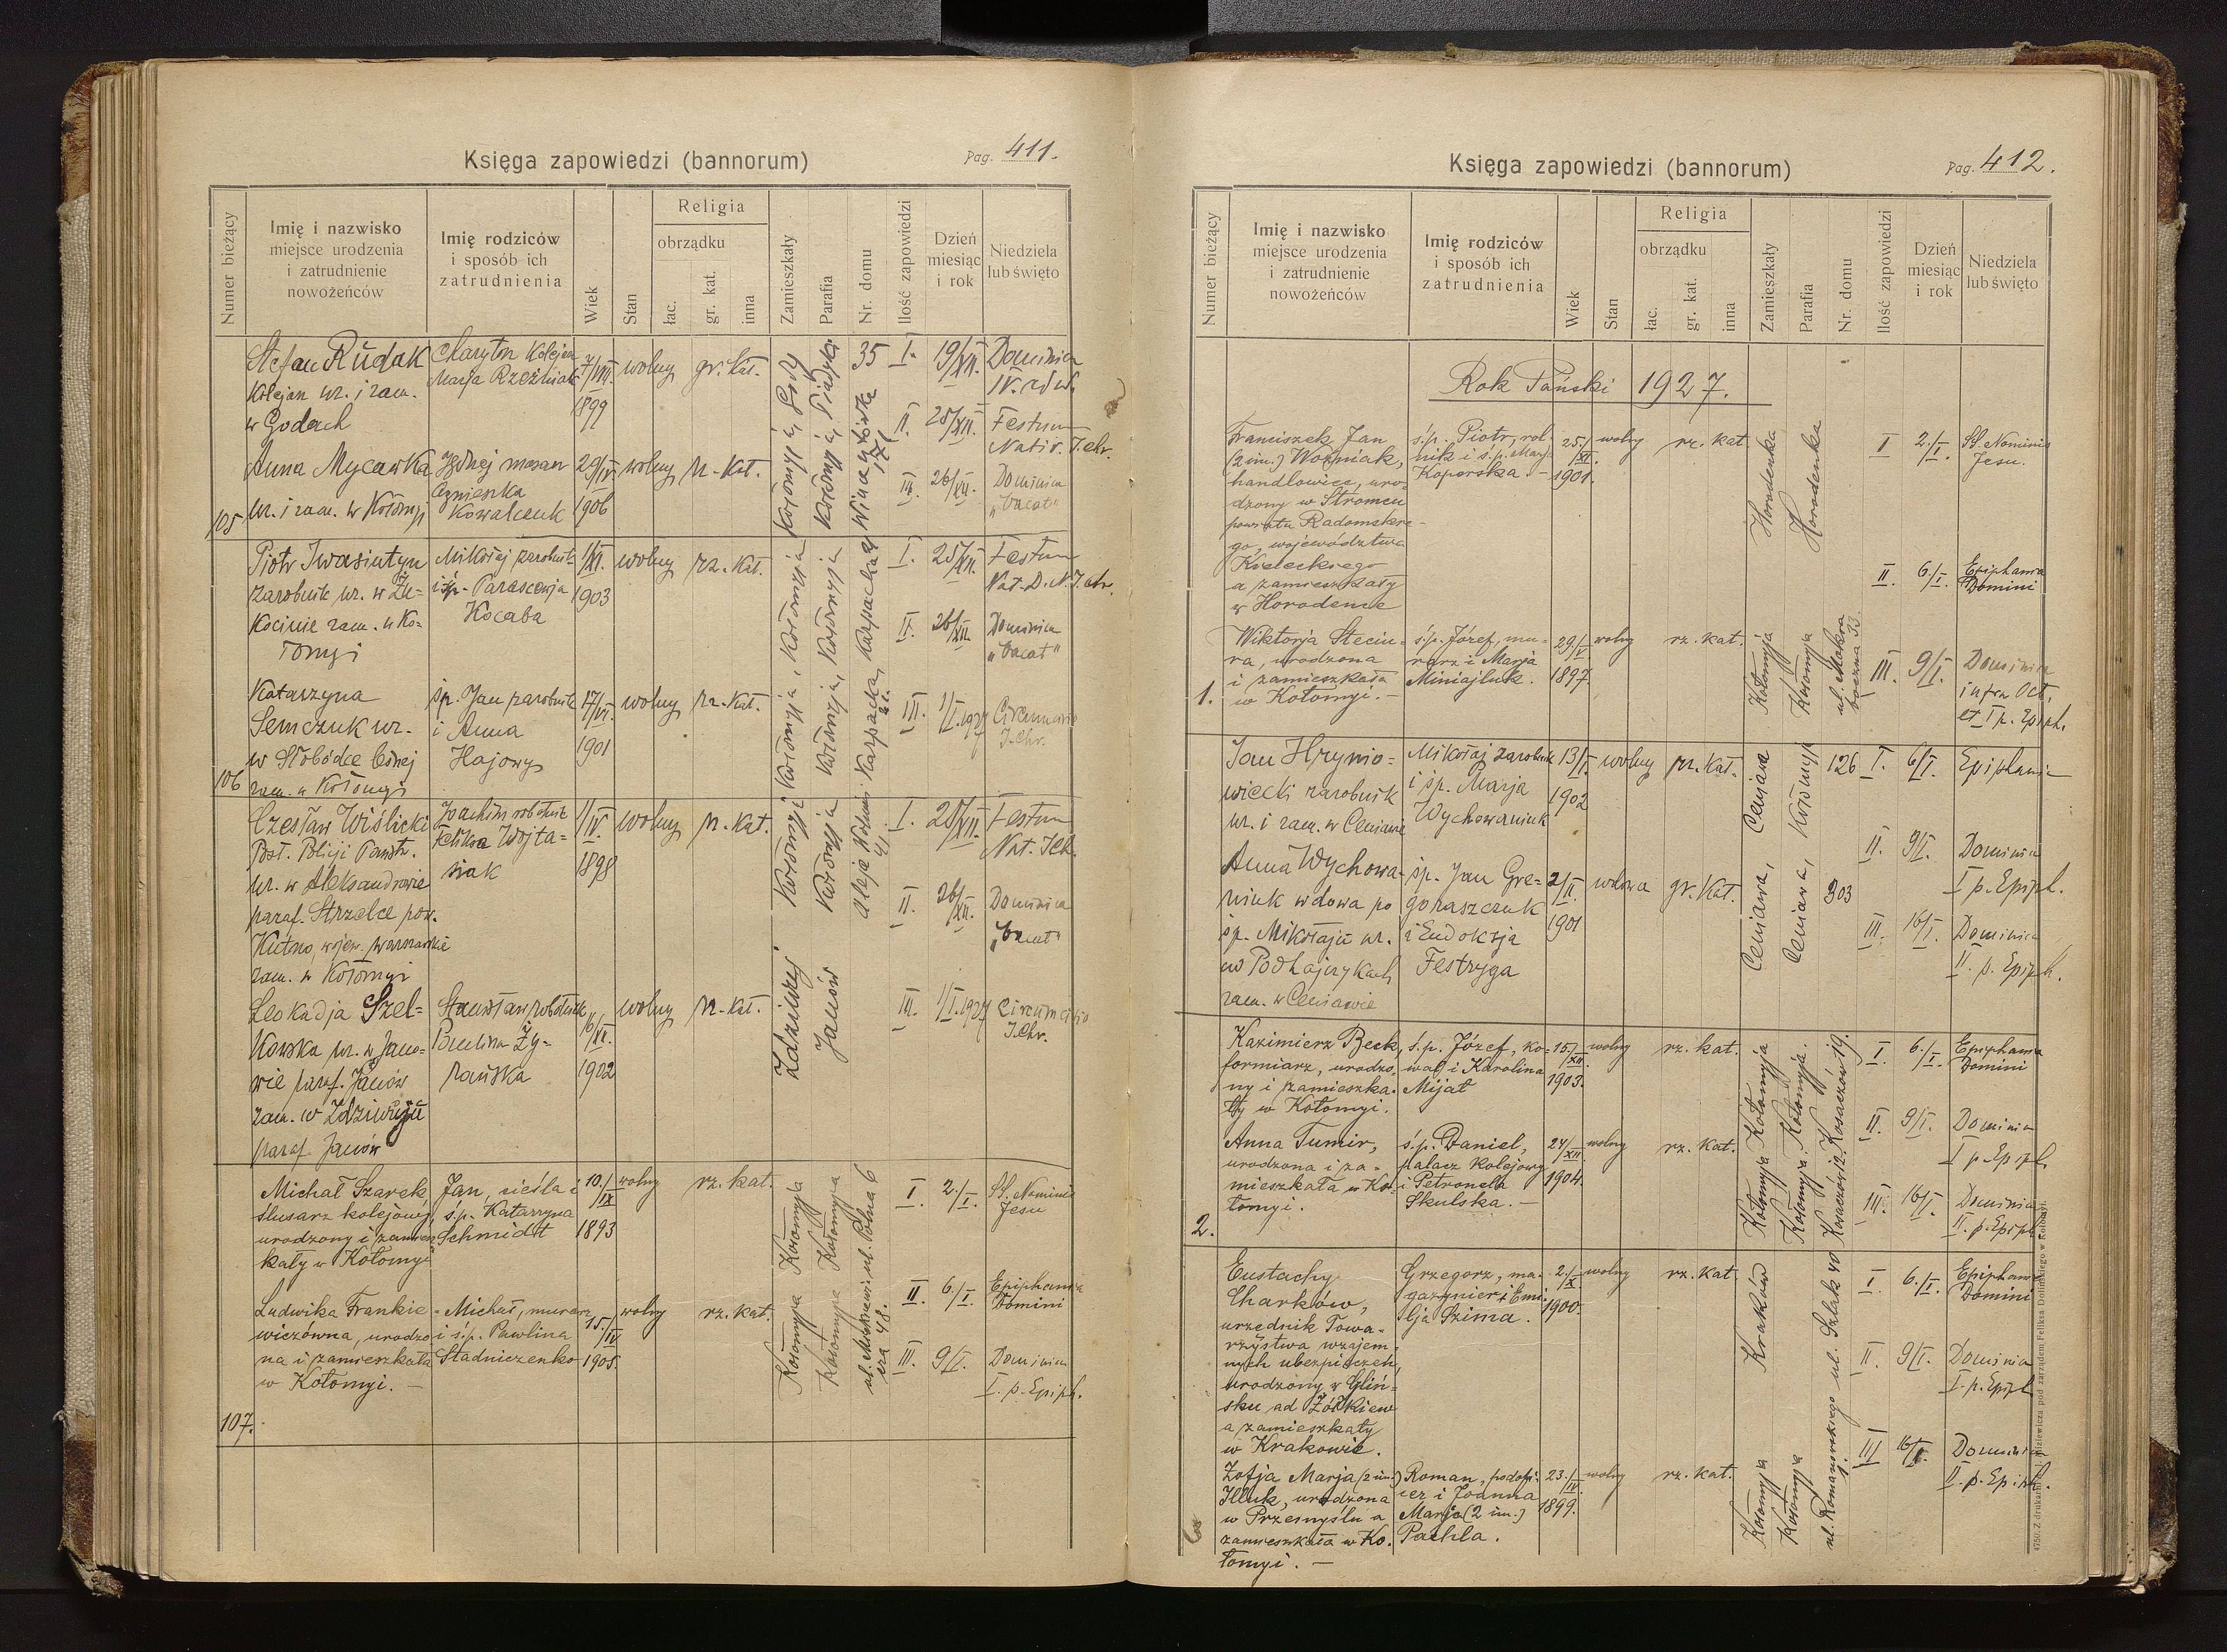 Księga zapowiedzi (bannorum)
Pag. 411.
Numer bieżący
Imię i nazwisko
miejsce urodzenia
i zatrudnienie
nowożeńców
Imię rodziców
i sposób ich
zatrudnienia
Wiek
Stan
Religia
obrządku
łac.
gr. kat.
inna
Zamieszkały
Parafia
Nr. domu
Ilość zapowiedzi
Dzień
miesiąc
i rok
Niedziela
lub święto
Stefan Rudak
Kolejarz ur. i zam.
w Godach
Charyton Kolejarz
Marja Rzeźniak
7/VIII.
1899
wolny
gr. kat.
35
I. 19/XII. Dominica
IV. adw.
II. 25/XII. Festum
Nativ. J. Chr.
III. 26/XII. Dominica
"Vacat"
Anna Mycawka
ur. i zam. w Kołomyi
murarz
Agnieszka
Kowalczuk
29/IV.
1906
wolny
rz. Kat.
105
Piotr Iwasiutyn
zarobnik ur. w Żu=
kocinie zam. w Ko=
łomyi
Mikołaj zarobnik
i śp. Parascewja
Kocaba
1/XI.
1903
wolny
rz. Kat.
Kołomyja
Kołomyja
Karpacka
I. 25/XII. Festum
Nat. D. N. J. Chr.
II. 26/XII. Dominica
"Vacat"
Katarzyna
Semczuk ur.
w Słobódce leśnej
zam. w Kołomyi
śp. Jan zarobnik
i Anna
Hajowy
17/VI.
1901
wolny
rz. Kat.
Kołomyja
Kołomyja
Karpacka
III. 1/I. 1927 Circumcisio
J. Chr.
106
Czesław Wiślicki
Post. Policji Państw.
ur. w Aleksandrowie
paraf. Strzelce pow.
Kutno, wojew. warszawskie
zam. w Kołomyi
Joachim robotnik
Feliksa Wojta=
siak
1/IV.
1898
wolny
rz. Kat.
Kołomyja
Kołomyja
Aleja Wolności 41
I. 25/XII. Festum
Nat. J. Ch.
II. 26/XII. Dominica
"Vacat"
Leokadja Szel=
kowska ur. w Jano=
wie paraf. Janów
zam. w Zdziwuju
paraf. Janów
Stanisław robotnik
Paulina Ży=
rańska
6/XI.
1902
wolny
rz. Kat.
Janów
III. 1/I. 1927 Circumcisio
J. Chr.
Michał Szarek
ślusarz kolejowy,
urodzony i zamiesz=
kały w Kołomyi
Jan, cieśla i
ś.p. Katarzyna
Schmidt
10./IX
1893
wolny
rz. kat.
Kołomyja
Kołomyja
ul. Polna 6
I 2./I. SS. Nominis
Jesu
II 6./I. Epiphania
Domini
Ludwika Frankie=
wiczówna, urodzo=
na i zamieszkała
w Kołomyi. —
Michał, murarz
i ś.p. Pawlina
Stadniczenko
15./IV
1905.
wolny
rz. kat.
Kołomyja
Kołomyja
48.
III. 9/I. Dominica
I. p. Epiph.
107.
Księga zapowiedzi (bannorum)
Pag. 412.
Numer bieżący
Imię i nazwisko
miejsce urodzenia
i zatrudnienie
nowożeńców
Imię rodziców
i sposób ich
zatrudnienia
Wiek
Stan
Religia
obrządku
łac.
gr. kat.
inna
Zamieszkały
Parafia
Nr. domu
Ilość zapowiedzi
Dzień
miesiąc
i rok
Niedziela
lub święto
Rok Pański 1927.
Franciszek Jan
(2 im.) Woźniak,
handlowiec, uro=
dzony w Stromcu
powiatu Radomskie-
go, województwa
Kieleckiego
a zamieszkały
w Horodence
ś.p. Piotr, rol=
nik i ś.p. Marja
Koporska. —
25./XI.
1901.
wolny
rz. kat
Horodenka
Horodenka
I 2./I. SS. Nominis
Jesu.
II. 6./I. Epiphania
Domini
Wiktorja Steciu=
ra, urodzona
i zamieszkała
w Kołomyi. —
ś.p. Józef, mu=
rarz i Marja
Miniajluk.
29./V
1897
wolny
rz. kat.
Kołomyja
Kołomyja
ul. Mokra
boczna 33.
III. 9/I. Dominica
infra Oct,
et I p. Epiph.
1.
Jan Hrynio=
wiecki zarobnik
ur. i zam. w Ceniawie
Mikołaj zarobnik
i śp. Marja
Wychowaniuk
13/I.
1902
wolny
rz. Kat.
Ceniawa
Kołomyja
126
I. 6/I. Epiphania
II. 9/I. Dominica
I p. Epiph.
Anna Wychowa=
niuk wdowa po
śp. Mikołaju ur.
w Podhajczykach
zam. w Ceniawie
śp. Jan Gre=
goraszczuk
i Eudoksja
Festryga
2/II.
1901
wdowa
gr. Kat.
Ceniawa,
Ceniawa,
303
III. 16/I. Dominica
II. p. Epiph.
Kazimierz Beck,
formiarz, urodzo=
ny i zamieszka=
ły w Kołomyi.
ś.p. Józef, ko=
wal i Karolina
Mijał
15./XII.
1903.
wolny
rz. kat.
Kołomyja
Kołomyja.
I 6./I. Epiphania
Domini
II. 9/I. Dominica
I p. Epiph.
Anna Tumir,
urodzona i za=
mieszkała w Ko=
łomyi.
ś.p. Daniel,
palacz kolejowy
i Petronela
Skulska. —
24/XII
1904.
wolny
rz. kat.
Kołomyja
Kołomyja
III. 16/I. Dominica
II. p. Epiph.
2.
Eustachy
Charków,
urzędnik Towa=
rzystwa wzajem=
nych ubezpieczeń,
urodzony w Gliń=
sku ad Żółkiew
a zamieszkały
w Krakowie.
Grzegorz, ma=
gazynier i Emi=
lja Szima.
2./X
1900.
wolny
rz. kat
Kraków
ul. Szlak 40
I 6./I. Epiphania
Domini
II. 9/I. Dominica
I. p. Epiph.
Zofja Marja (2 im.)
Illuk, urodzona
w Przemyślu a
zamieszkała w Ko=
łomyi. —
Roman, podofi=
cer i Joanna
Marja (2 im.)
Pachla.
23./IV
1899.
wolny
rz. kat.
Kołomyja
Kołomyja
ul. Romanowskiego 1.
III 16/I. Dominica
II. p. Epiph.